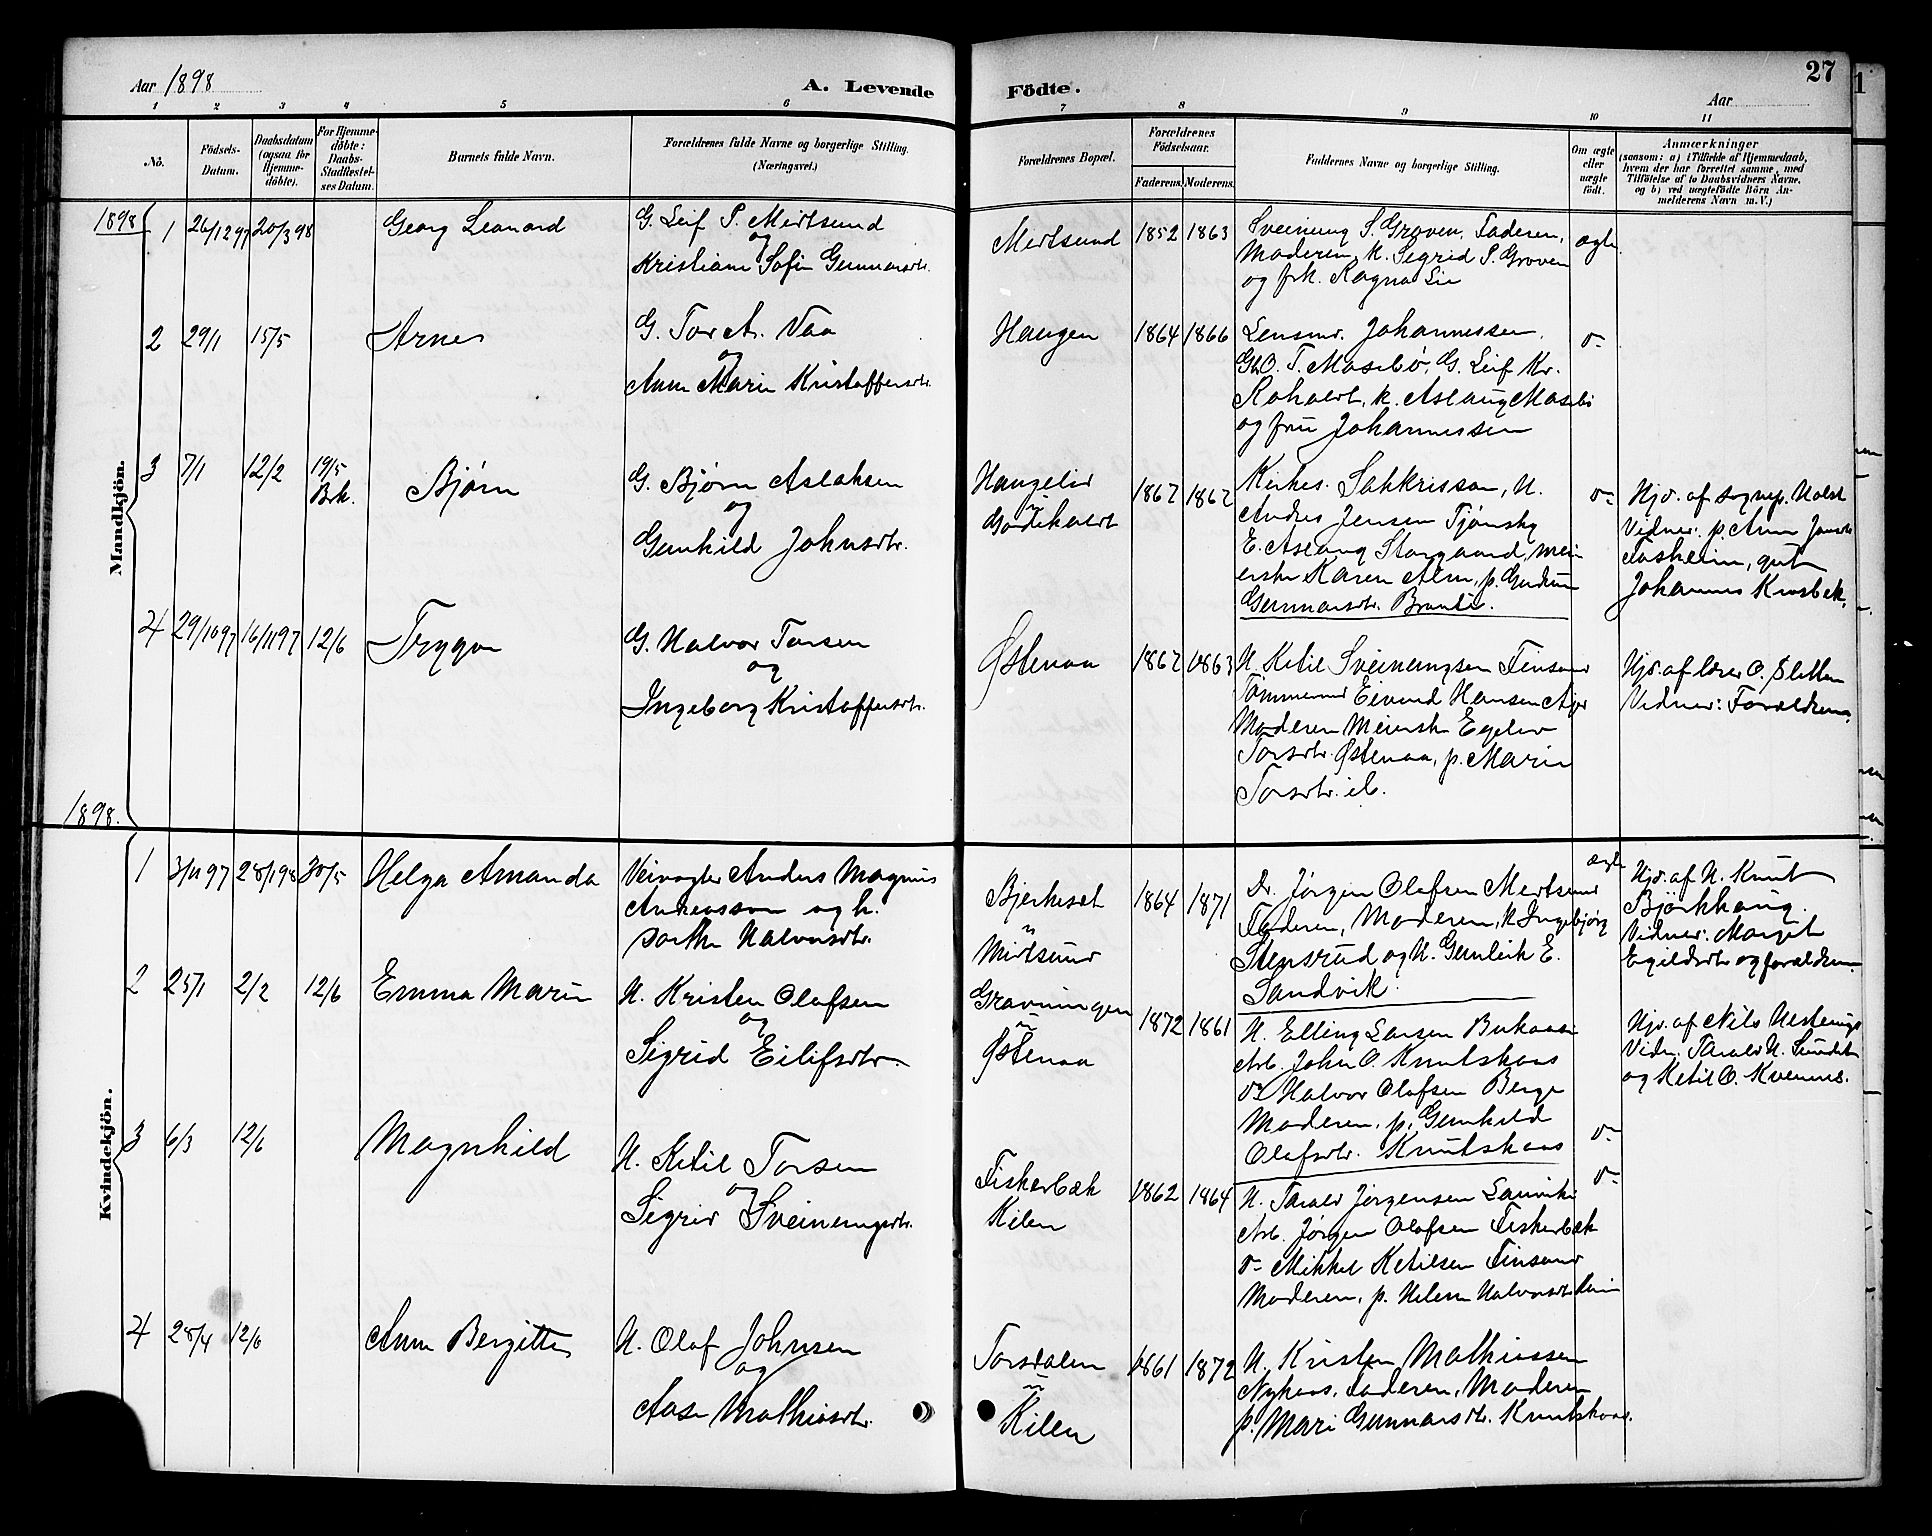 Aar 1898
A. Levende
Födte.
27
Aar
1 2 3 4 5 6 7 8 9 10 11
No.
Födsels-
Datum.
Daabsdatum
(ogsaa for
Hjemme-
döbte).
For Hjemme-
döbte:
Daabs-
Stadfæstel-
ses Datum.
Barnets fulde Navn.
Forældrenes fulde Navne og borgerlige Stilling.
(Næringsvei.)
Forældrenes Bopæl.
Forældrenes
Födselsaar.
Faderens. Moderens.
Faddernes Navne og borgerlige Stilling.
Om ægte
eller
uægte
födt.
Anmærkninger
(saasom: a) i Tilfælde af Hjemmedaab,
hvem der har forrettet samme, med
Tilföielse af to Daabsvidners Navne,
og b) ved uægtefödte Börn An-
melderens Navn m. V.)
Mandkjön.
1898
1 26/12 97 20/3 98
Georg Leonard
G. Leif P. Mertsund
og
Kristiane Sofie Gunnarsdtr.
Mertsund
1852 1863
Sveinung S. Groven, Faderen,
Moderen, k. Sigrid S. Groven
og frk. Ragna Lie
ægte
2 29/1 15/5
Arne
G. Tor A. Vaa
og
Anne Marie Kristoffersdtr.
Haugen
1864 1866
Lensmd. Johannessen,
T. Masebø, G. Leif Kr.
k. Aslaug Masebø
og fru Johannessen
3 7/1 12/2 19/5
Brk.
Bjørn
G. Bjørn Aslaksen
og
Gunhild Johnsdtr.
Haugelid
1867 1862
Kirkes. U.
Andres Jensen
E. Aslaug Storgaard, mei-
erske Karen Alm, p. Gudrun
Gunnarsdtr.
Hjd. af sognep. Holst
Vidner: p. Anne
gut
Johannes
4 29/10 97 16/11 97 12/6
Trygve
G. Halvor Torsen
og
Ingeborg Kristoffersdtr.
Østenaa
1862 1863
U. Ketil Sveinungsen Finsand
Tømmermd. Eivind Hansen
Moderen Meierske Egelev
Torsdtr. Østenaa, p. Marie
Torsdtr. ib.
Hjd. af lærer O. Sletten
Vidner: Forældrene
1898.
Kvindekjön.
1 3/11 97 28/1 98 30/5
Helga Amanda
Veivogter Anders Magnus
Andreasson og h.
Dorthe Halvorsdtr.
Bjerkeset
Mertsund
1864 1871
Dr. Jørgen Olafsen Mertsund
Faderen, Moderen, k. Ingebjørg
Stensrud og U. Gunleik E.
Sandvik.
ægte
Hjd. af U. Knut
Björkhaug.
Vidner: Margit
Egildsdtr. og forældrene
2 25/1 2/2 12/6
Emma Marie
U. Kristen Olafsen
og
Sigrid Eilifsdtr.
Gravningen
Østenaa
1872 1861
U. Elling Larsen
Arb. John O. Knutskaas
Halvor Olafsen Berge
Moderen, p. Gunhild
Olafsdtr. Knutskaas
Hjd. af Nils
Vidn. Tarald H. Sundet
og Ketil O. Kvennes.
3 6/3 12/6
Magnhild
U. Ketil Torsen
og
Sigrid Sveinungsdtr.
Fiskerbæk
Kilen
1862 1864
U. Tarald Jørgensen
Arb. Jørgen Olafsen Fiskerbæk
Mikkel Ketilsen Finsand
Moderen, p. Helene Halvorsdtr.
4 28/4 12/6
Anne Bergitte
U. Olaf Johnsen
og
Aase Mathiasdtr.
Torsdalen
Kilen
1861 1872
U. Kristen Mathiassen
Nykaas, Faderen, Moderen
p. Mari Gunnarsdtr. Knutskaas.